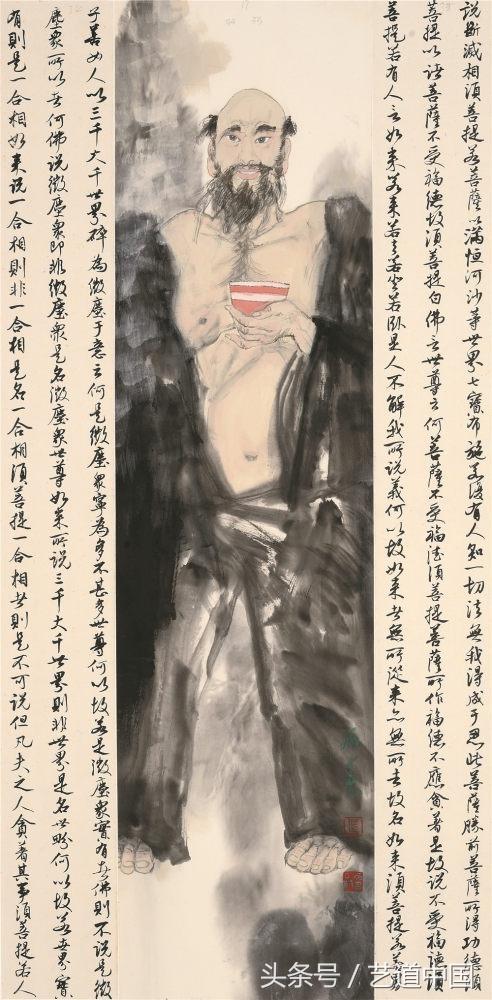 說斷滅相須菩提若菩薩以滿恒河沙等世界七寶布施若復有人知一切法無我得成于忍此菩薩勝前菩薩所得功德須
菩提以諸菩薩不受福德故須菩提白佛言世尊云何菩薩不受福德須菩提菩薩所作福德不應貪著是故說不受福德須
菩提若有人言如來若來若去若坐若臥是人不解我所說義何以故如來者無所從來亦無所去故名如來須菩提若善男
子善女人以三千大千世界碎為微塵于意云何是微塵衆寧為多不甚多世尊何以故若是微塵衆實有者佛則不說是微
塵衆所以者何佛說微塵衆即非微塵衆是名微塵衆世尊如來所說三千大千世界則非世界是名世界何以故若世界實
有則是一合相如來說一合相則非一合相是名一合相須菩提一合相者則是不可說但凡夫之人貪著其事須菩提若人
头条号／艺道中国